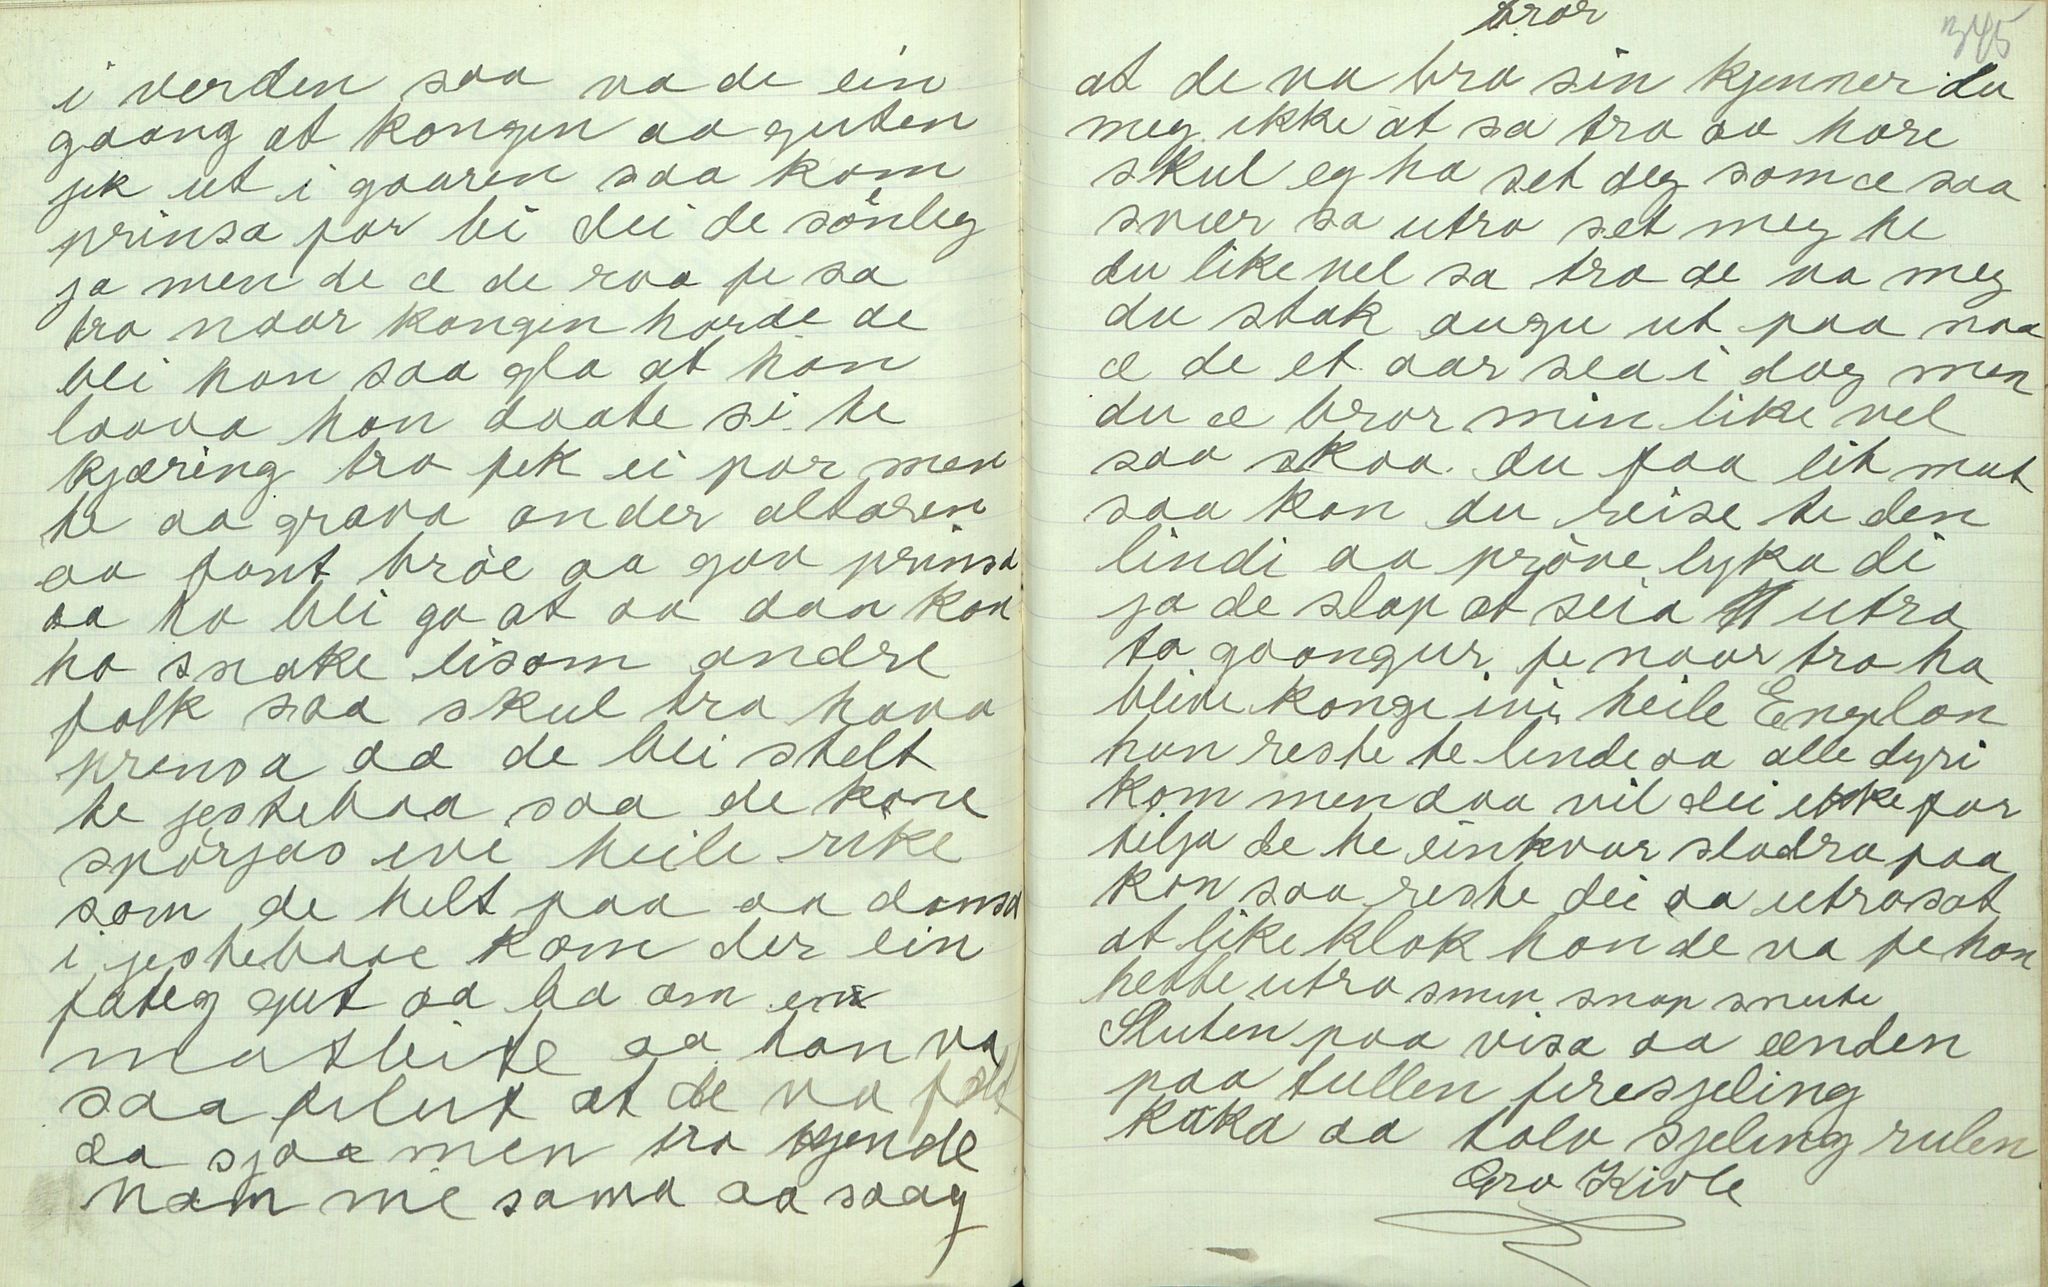 i verden saa va de ein
gaang at kongen aa guten
jek ut i gaaren saa kom
prinsa for bi dei de sønleg
ja men de æ de raa fe sa
tro naar kongen horde de
blei han saa gla at han
laava han daate si te
kjæring tro fek ei par men
te aa grava onder altaren
aa fant brøe aa gav prinsa
aa ho blei go at aa daa kon
ho snake lisom andre
folk saa skul tro hava
prensa aa de blei stelt
te jestebaa saa de kore
spørjas ivi heile rike
som de helt paa aa dansa
i jestebaae kom der ein
fateg gut aa ba om ein
matbite aa han va
saa filut at de va fælt
aa sjaa men tro kjende
ham mé sama aa saag
345
bror
at de va bro sin kjenner du
meg ikke at sa tro aa hare
skul eg ha set deg som æ saa
svær sa utro set meg he
du like vel sa tro de va meg
du stak augu ut paa naa
æ de et aar sea i dag men
du æ bror min like vel
saa skaa du faa lit mat
saa kan du reise te den
lindi aa prøve lyka di
ja de slap at seia utro
to gaangur fe naar tro ha
blive konge ivi heile Englan
han reste te linde aa alle dyri
kom men daa vil dei ekke for
telja de he einkvar sladra paa
kon saa reste dei aa utro sat
at like klok han de va fe han
hette utro smip snap snute
Sluten paa visa aa ænden
paa tullen firesjeling
kaka aa tolv sjeling rulen
Gro Kivle